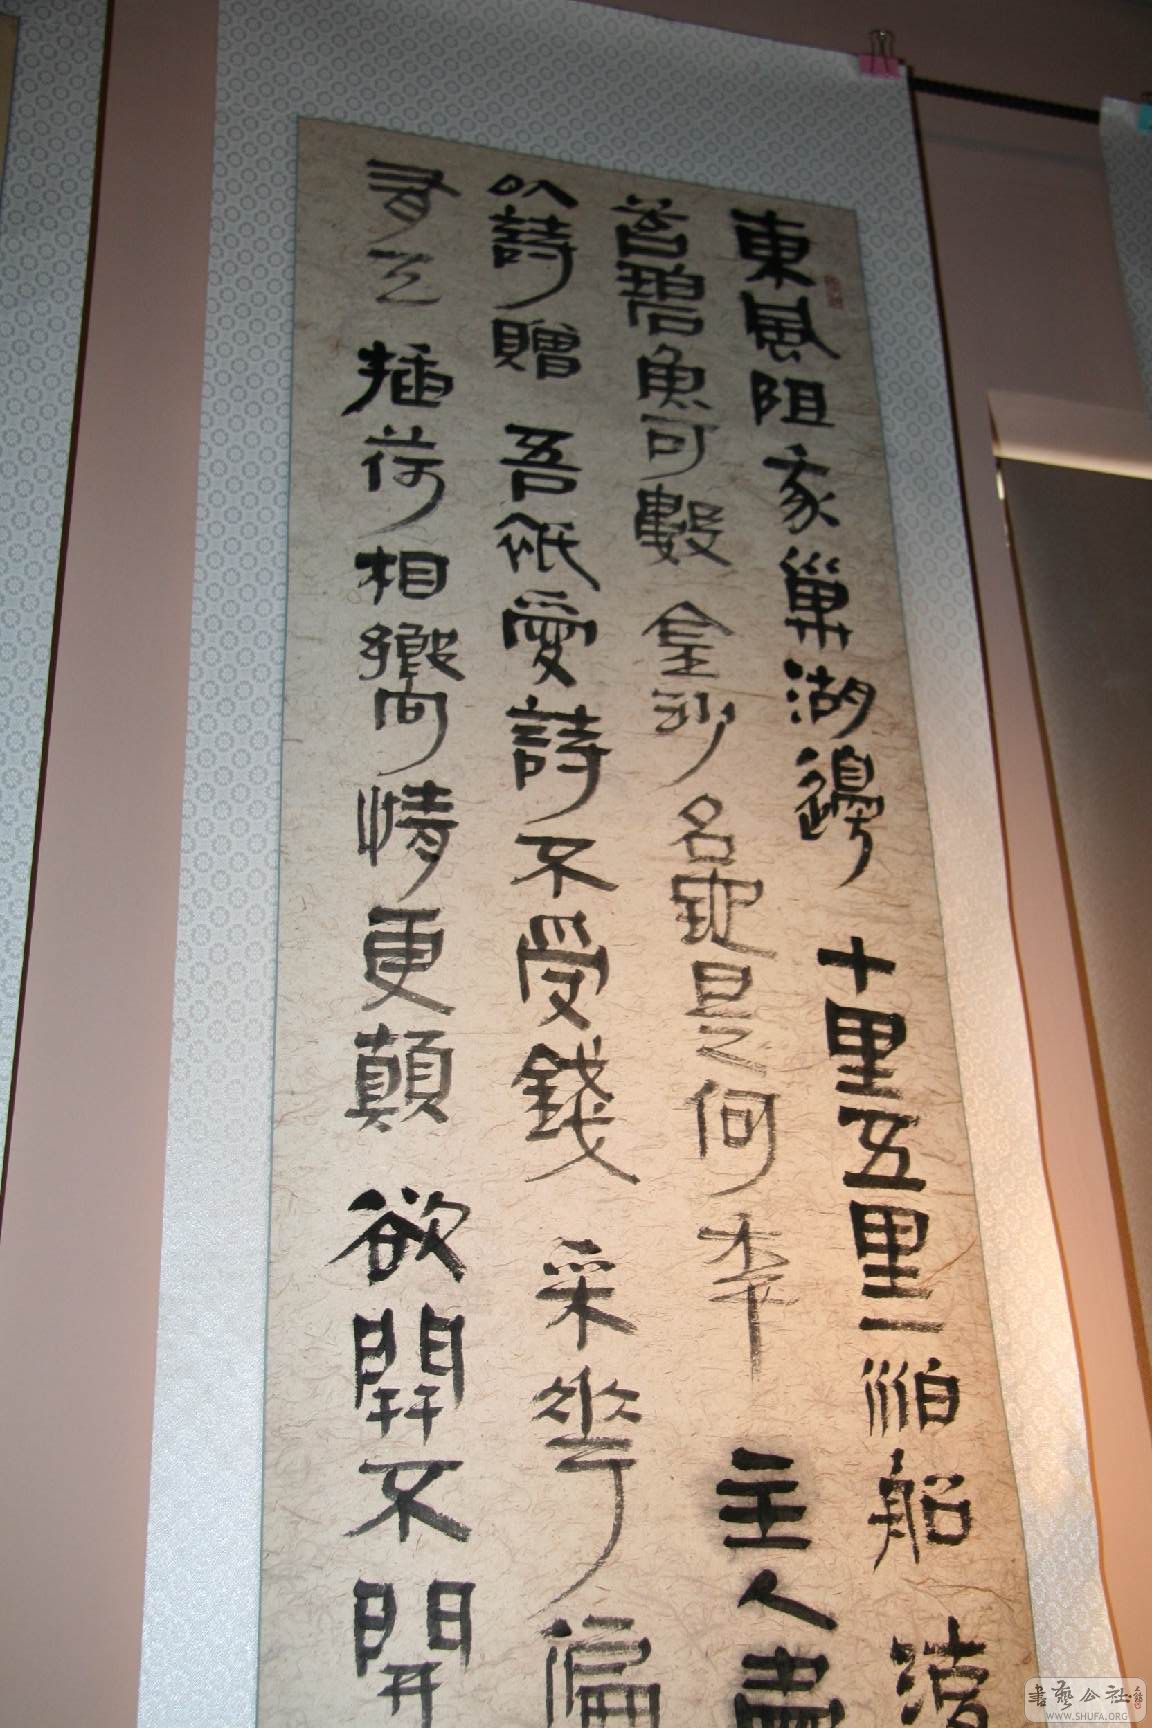 東風阻我巢湖邊十里五里一泊船清
苔碧魚可數金沙名寔是何年主人盡
以詩贈吾祇愛詩不受錢采花偏
插荷相鄉向情更顛欲開不開
書藝公社
WWW.SHUFA.ORG